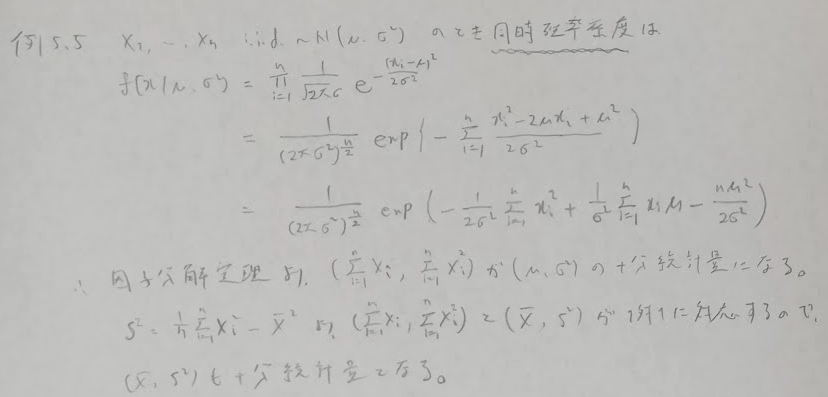 例5.5 X₁, …, Xₙ i.i.d. ~ N(μ, σ²) のとき同時確率密度は
f(x|μ, σ²) = ∏_{i=1}^{n} 1/(√(2π)σ) e^{-(xᵢ-μ)²/(2σ²)}
= 1/(2πσ²)^{n/2} exp{ - Σ_{i=1}^{n} (xᵢ² - 2μxᵢ + μ²)/(2σ²) )
= 1/(2πσ²)^{n/2} exp( - 1/(2σ²) Σ_{i=1}^{n} xᵢ² + 1/σ² Σ_{i=1}^{n} xᵢμ - nμ²/(2σ²) )
∴ 因子分解定理より, (Σ_{i=1}^{n} Xᵢ, Σ_{i=1}^{n} Xᵢ²) が (μ, σ²) の十分統計量になる。
S² = 1/n Σ_{i=1}^{n} Xᵢ² - X̄² より, (Σ_{i=1}^{n} Xᵢ, Σ_{i=1}^{n} Xᵢ²) と (X̄, S²) が 1対1に対応するので,
(X̄, S²) も十分統計量となる。